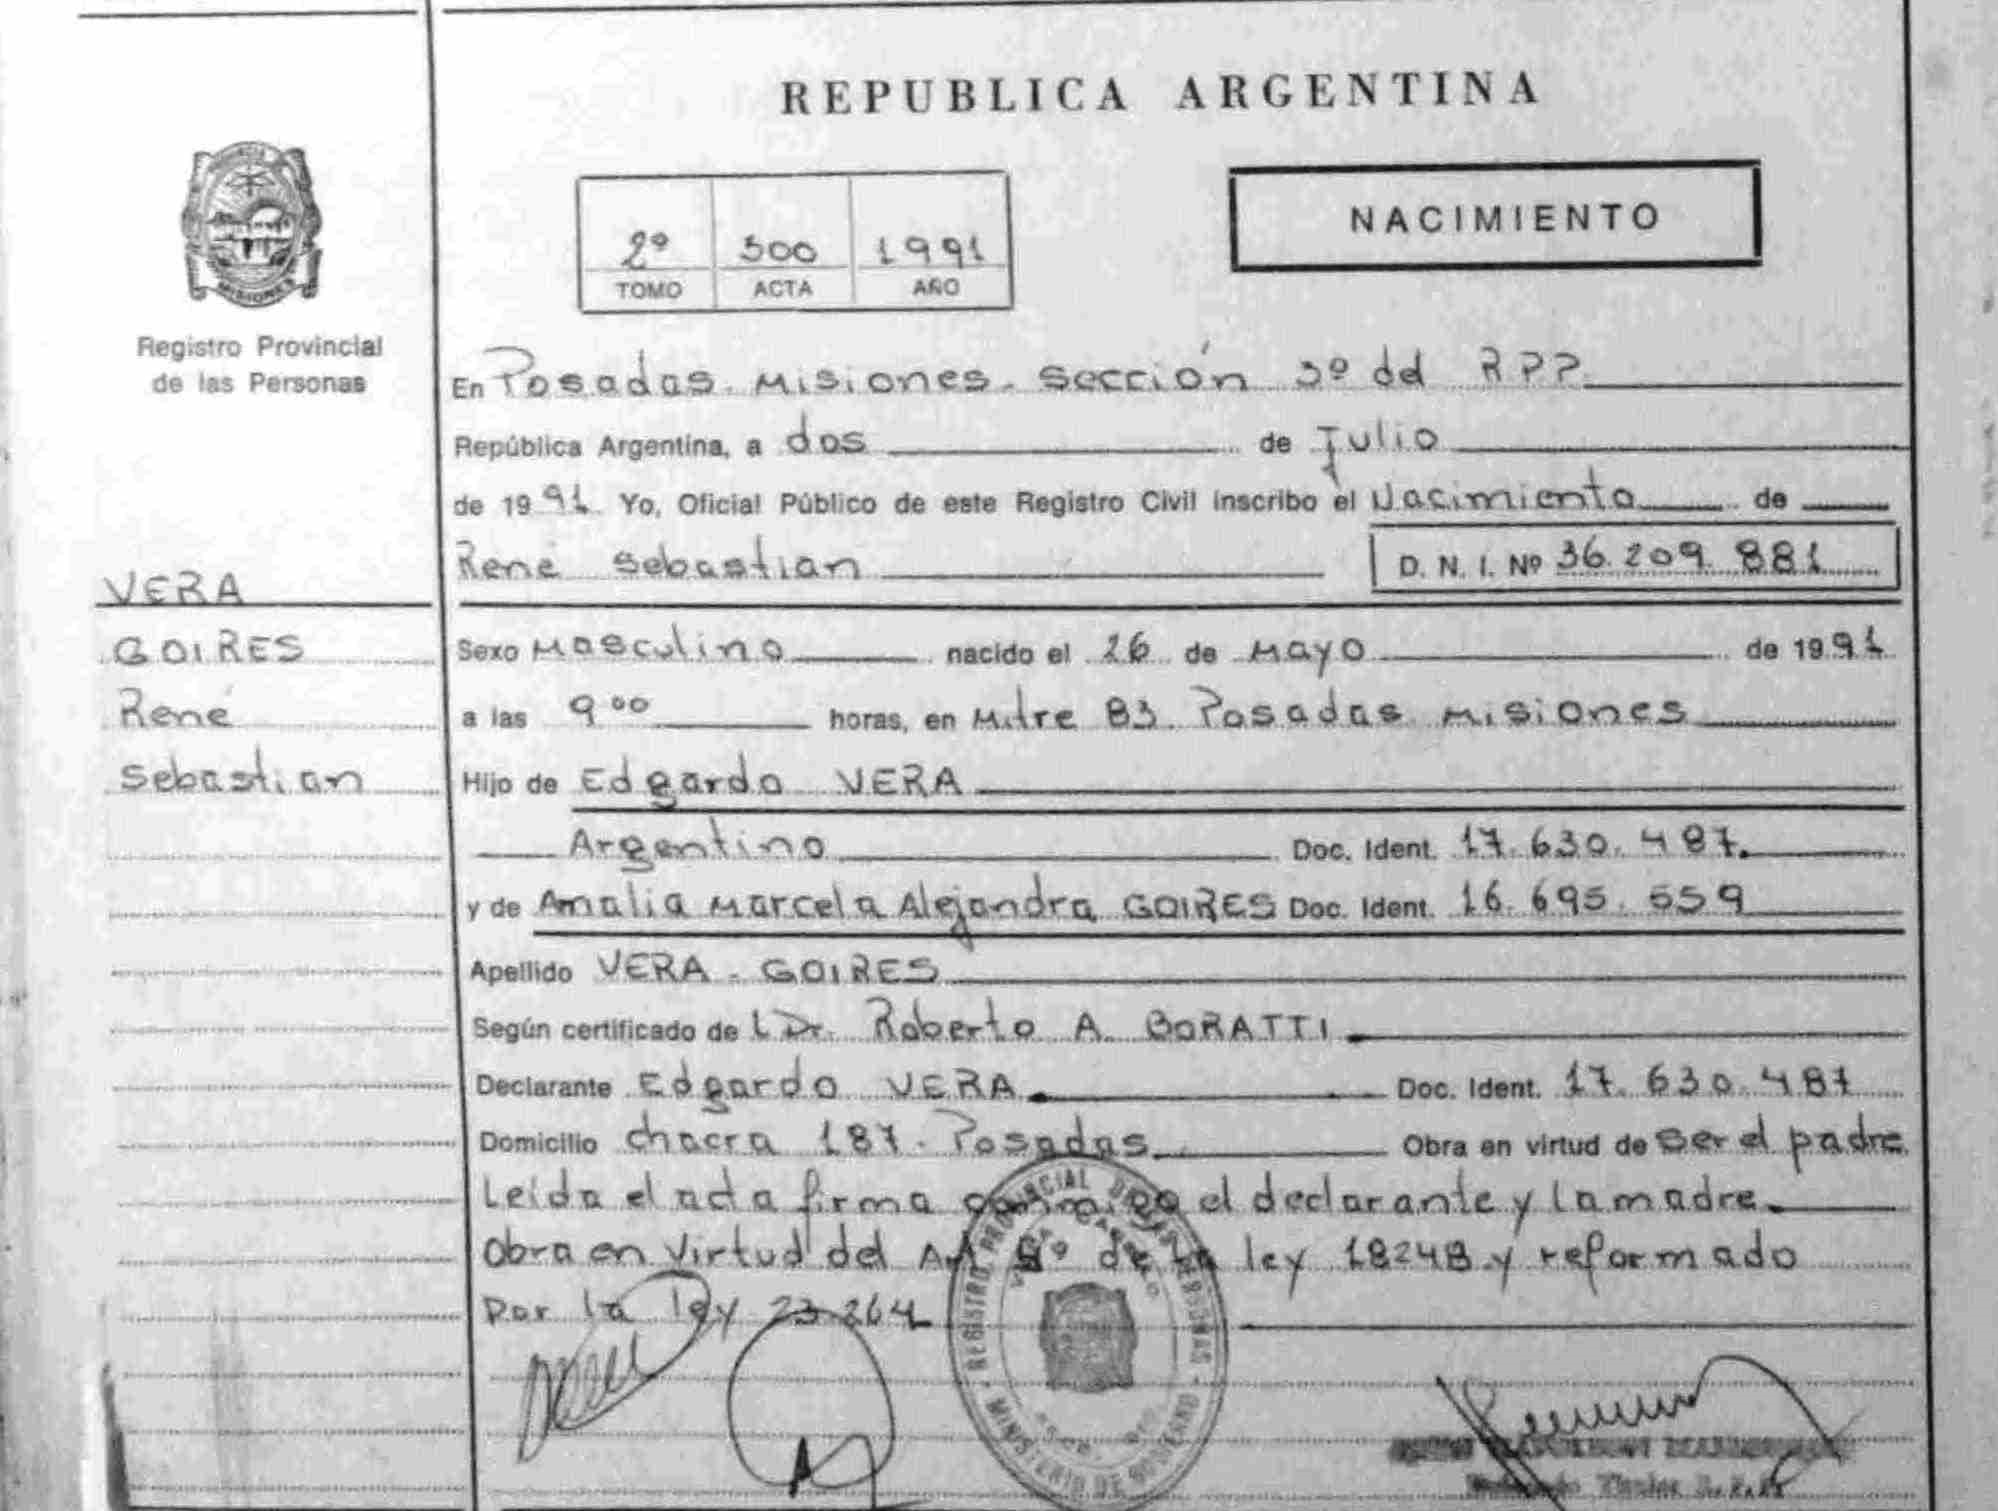 REPUBLICA ARGENTINA
NACIMIENTO
2º 300 1991
TOMO ACTA AÑO
MISIONES
Registro Provincial
de las Personas
En Posadas. Misiones. Sección 3º del RPP
República Argentina, a dos de Julio
de 1991 Yo, Oficial Público de este Registro Civil inscribo el Nacimiento de
René Sebastian D. N. I. Nº 36.209.881
VERA
GOIRES
René
Sebastian
Sexo Masculino nacido el 26 de Mayo de 1991
a las 9 00 horas, en Mitre 83. Posadas Misiones
Hijo de Edgardo VERA
Argentino Doc. Ident. 17.630.487.
y de Amalia Marcela Alejandra GOIRES Doc. Ident. 16.695.559
Apellido VERA - GOIRES
Según certificado de l Dr. Roberto A. BORATTI
Declarante Edgardo VERA Doc. Ident. 17.630.487
Domicilio Chacra 187. Posadas Obra en virtud de ser el padre
Leída el acta firma conmigo el declarante y la madre.
Obra en virtud del Art 5º de la ley 18248 y reformado
por la ley 23.264
REGISTRO PROVINCIAL DE LAS PERSONAS
MINISTERIO DE GOBIERNO